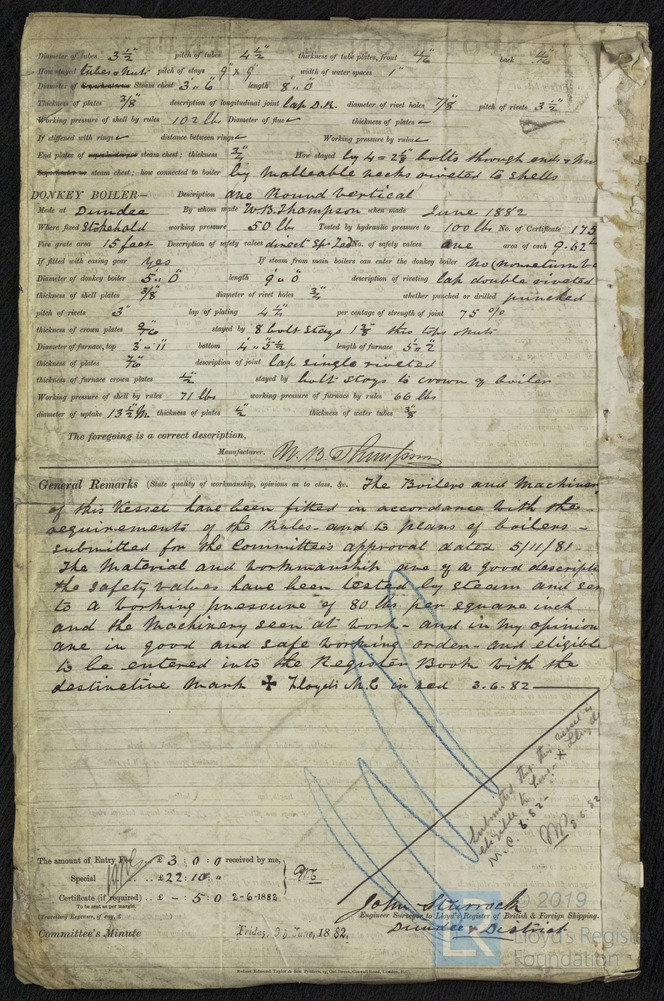 Diameter of tubes 3 1/2" pitch of tubes 4 1/2" thickness of tube plates, front 1/16" back 1/16"
How stayed tubes & nuts pitch of stays 9" x 9" width of water spaces 1"
Diameter of Superheater or Steam chest 3' " 6" length 8' " 0"
Thickness of plates 3/8" description of longitudinal joint lap D.R. diameter of rivet holes 7/8" pitch of rivets 3 1/2"
Working pressure of shell by rules 102 lb Diameter of flue ✓ thickness of plates ✓
If stiffened with rings ✓ distance between rings ✓ Working pressure by rules ✓
End plates of superheater or steam chest; thickness 3/4" How stayed by 4 = 2 3/8 bolts through ends & nu
Superheater or steam chest; how connected to boiler by malleable necks riveted to shells
DONKEY BOILER— Description one Round vertical
Made at Dundee By whom made W.B. Thompson when made June 1882
Where fixed Stokehold working pressure 50 lb Tested by hydraulic pressure to 100 lbs No. of Certificate 175
Fire grate area 15 feet Description of safety valves direct Sp Lad No. of safety valves one area of each 9.62"
If fitted with easing gear Yes If steam from main boilers can enter the donkey boiler no (nonreturn
Diameter of donkey boiler 5' " 0" length 9' " 0 description of riveting lap double riveted
thickness of shell plates 3/8" diameter of rivet holes 3/4" whether punched or drilled punched
pitch of rivets 3" lap of plating 4 1/2 per centage of strength of joint 75 %
thickness of crown plates 9/16 stayed by 8 bolt stays 1 3/8" thro tops & nuts
Diameter of furnace, top 3' - 11 bottom 4' " 5 1/2 length of furnace 5' " 2
thickness of plates 7/16" description of joint lap single riveted
thickness of furnace crown plates 1/2" stayed by bolt stays to crown of boiler
Working pressure of shell by rules 71 lbs working pressure of furnace by rules 66 lbs
diameter of uptake 13 1/2 In. thickness of plates 1/2" thickness of water tubes 3/8
The foregoing is a correct description,
Manufacturer. W. B. Thompson
General Remarks (State quality of workmanship, opinions as to class, &c. The Boilers and Machiner
of this Vessel have been fitted in accordance with the
requirements of the Rules - and to plans of boilers -
submitted for the Committee's approval dated 5/11/81 -
The Material and workmanship are of a good descripti
the safety valves have been tested by steam and set
to a working pressure of 80 lbs per square inch
and the Machinery seen at work - and in my opinion
are in good and safe working order - and eligible
to be entered into the Register Book with the
destinctive mark ✠ Lloyds M.C in red 3.6.82
Submitted that this vessel is
eligible to have ✠ Lloyds
M.C. 6.82-
8.6.82
The amount of Entry Fee .. £ 3 : 0 : 0 received by me,
Special .. £22: 10 "
Certificate (if required) .. £ - : 5 : 0 2-6-1882
To be sent as per margin.
(Travelling Expenses, if any, £
John Sturrock
Engineer Surveyor to Lloyd's Register of British & Foreign Shipping.
Dundee District
Committee's Minute Friday, 9th June, 1882.
Robert Edmund Taylor & Son Printers, 19, Old Street, Goswell Road, London, E.C.
© 2019
Lloyd's Register
Foundation